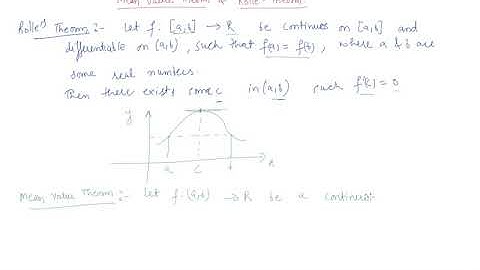 Mean Value Theorem & Rolle's Theorem
Rolle's Theorem :- Let f: [a,b] → R be continues on [a,b] and
differentiable on (a,b), such that f(a) = f(b), where a & b are
some real numbers.
Then there exists some c in (a,b) such f'(c) = 0
y
a c x
Mean Value Theorem :- Let f: (a,b) → R be a continuous